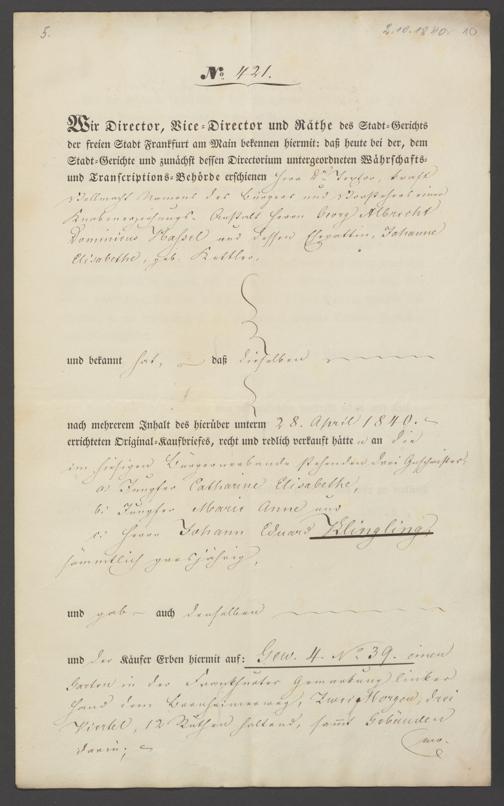 5.
2.10.1840. 10
No 421.
Wir Director, Vice-Director und Räthe des Stadt-Gerichts
der freien Stadt Frankfurt am Main bekennen hiermit: daß heute bei der, dem
Stadt-Gerichte und zunächst dessen Directorium untergeordneten Währschafts-
und Transcriptions-Behörde erschienen Herr Dr. Textor, kraft
Vollmacht Namens des Bürgers und Vorstehers einer
Knabenerziehungs-Anstalt Herrn Georg Albrecht
Dominicus Hassel und dessen Ehegattin, Johanne
Elisabethe, geb. Kettler,
und bekannt hat, daß dieselben
nach mehrerem Inhalt des hierüber unterm 28. April 1840.
errichteten Original-Kaufbriefes, recht und redlich verkauft hätten an die
im hiesigen Bürgerverbande stehenden drei Geschwister,
a. Jungfer Catharine Elisabethe,
b. Jungfer Marie Anne und
c. Herrn Johann Eduard Klingling,
sämmtlich großjährig,
und gab auch denselben
und der Käufer Erben hiermit auf: Gew. 4. No 39. einen
Garten in der Frankfurter Gemarkung linker
Hand dem Bornheimerweg, Zwei Morgen, drei
Viertel, 12 Ruthen haltend, sammt Gebäuden
darin;